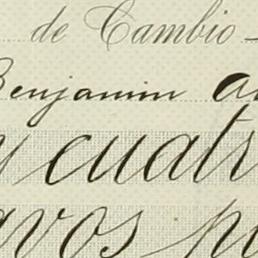 de Cambio
Benjamin A
y cuatr
avos p